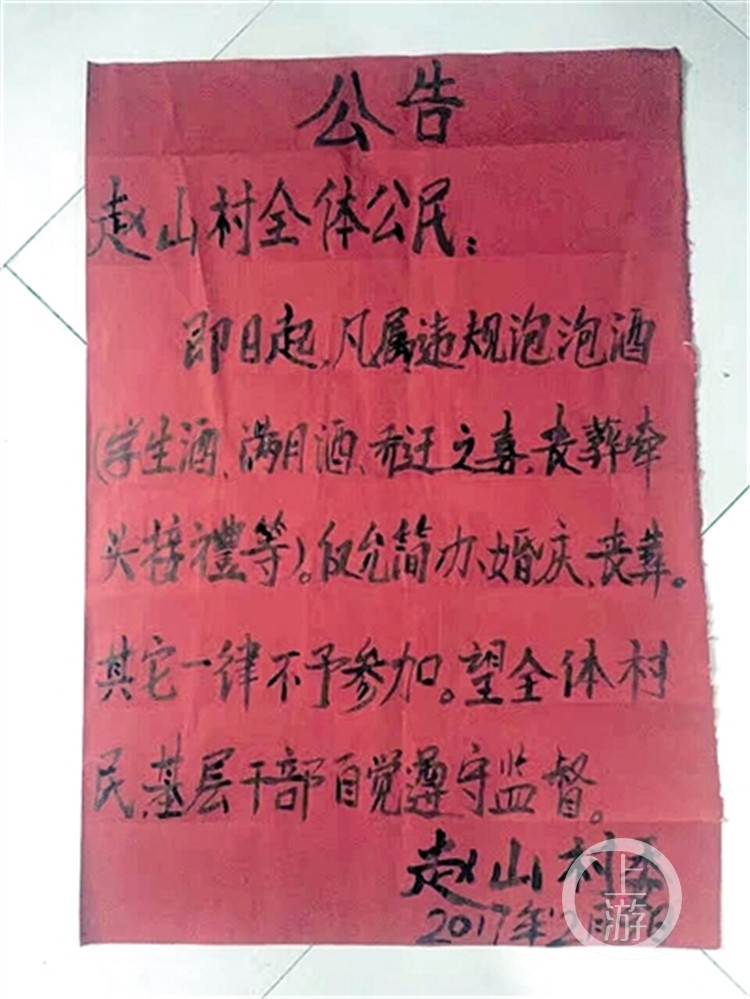 公告
赵山村全体公民：
即日起，凡属违规泡泡酒
（学生酒、满月酒、乔迁之喜、丧葬牵
头接禮等）。仅允简办婚庆、丧葬。
其它一律不予参加。望全体村
民、基层干部自觉遵守监督。
赵山村
2017年2月
上游